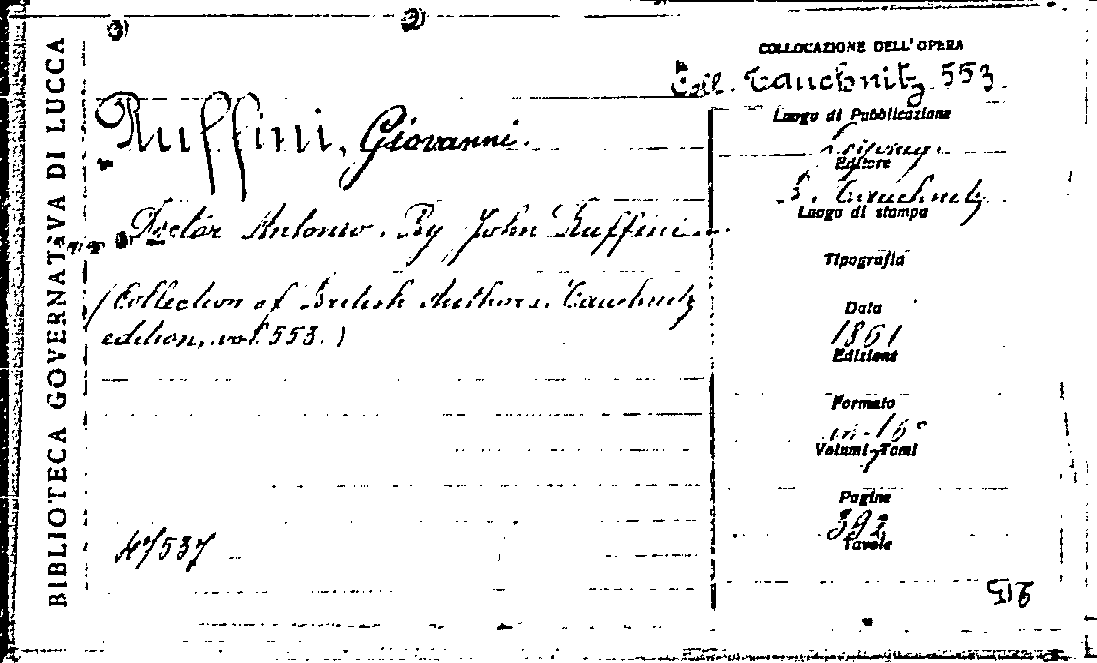 BIBLIOTECA GOVERNATIVA DI LUCCA
Ruffini, Giovanni.
Doctor Antonio. By John Ruffini
(Collection of British Authors. Tauchnitz
edition, vol. 553.)
47537
COLLOCAZIONE DELL'OPERA
Coll. Tauchnitz 553
Luogo di Pubblicazione
Leipzig.
Editore
B. Tauchnitz
Luogo di stampa
Tipografia
Data
1861
Edizione
Formato
in-16°
Volumi-Tomi
1
Pagine
392
Tavole